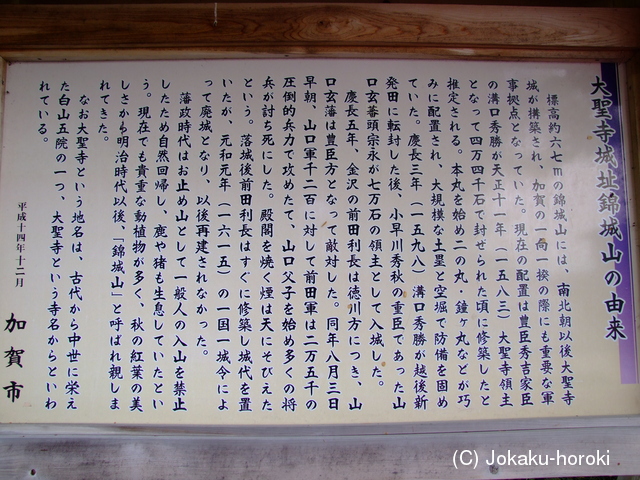 大聖寺城址錦城山の由来
標高約六七mの錦城山には、南北朝以後大聖寺
城が構築され、加賀の一向一揆の際にも重要な軍
事拠点となっていた。現在の配置は豊臣秀吉家臣
の溝口秀勝が天正十一年（一五八三）大聖寺領主
となって四万四千石で封ぜられた頃に修築したと
推定される。本丸を始め二の丸・鐘ヶ丸などが巧
みに配置され、大規模な土塁と空堀で防備を固め
ていた。慶長三年（一五九八）溝口秀勝が越後新
発田に転封した後、小早川秀秋の重臣であった山
口玄蕃頭宗永が七万石の領主として入城した。
慶長五年、金沢の前田利長は徳川方につき、山
口玄蕃は豊臣方となって敵対した。同年八月三日
早朝、山口軍千二百に対して前田軍は二万五千の
圧倒的兵力で攻めたて、山口父子を始め多くの将
兵が討ち死にした。殿閣を焼く煙は天にそびえた
という。落城後前田利長はすぐに修築し城代を置
いたが、元和元年（一六一五）の一国一城令によ
って廃城となり、以後再建されなかった。
藩政時代はお止め山として一般人の入山を禁止
したため自然回帰し、鹿や猪も生息していたとい
う。現在でも貴重な動植物が多く、秋の紅葉の美
しさから明治時代以後、「錦城山」と呼ばれ親しま
れてきた。
なお大聖寺という地名は、古代から中世に栄え
た白山五院の一つ、大聖寺という寺名からといわ
れている。
平成十四年十二月
加賀市
(C) Jokaku-horoki